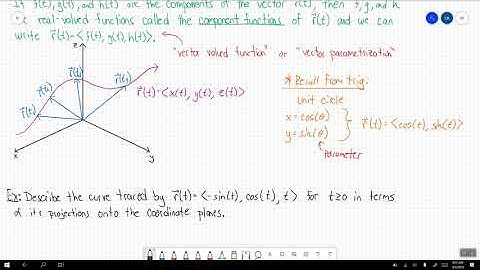 If f(t), g(t), and h(t) are the components of the vector r⃗(t), then f, g, and h
real-valued functions called the component functions of r⃗(t) and we can
write r⃗(t)=<f(t), g(t), h(t)>.
"vector valued function" or "vector parametrization"
z
r⃗(t)
r⃗(t)
r⃗(t)
r⃗(t)
r⃗(t)=<x(t), y(t), z(t)>
x
y
*Recall from trig:
unit circle
x=cos(θ)
y=sin(θ)
r⃗(t)=<cos(t), sin(t)>
parameter
Ex: Describe the curve traced by r⃗(t)=<-sin(t), cos(t), t> for t≥0 in terms
of its projections onto the coordinate planes.